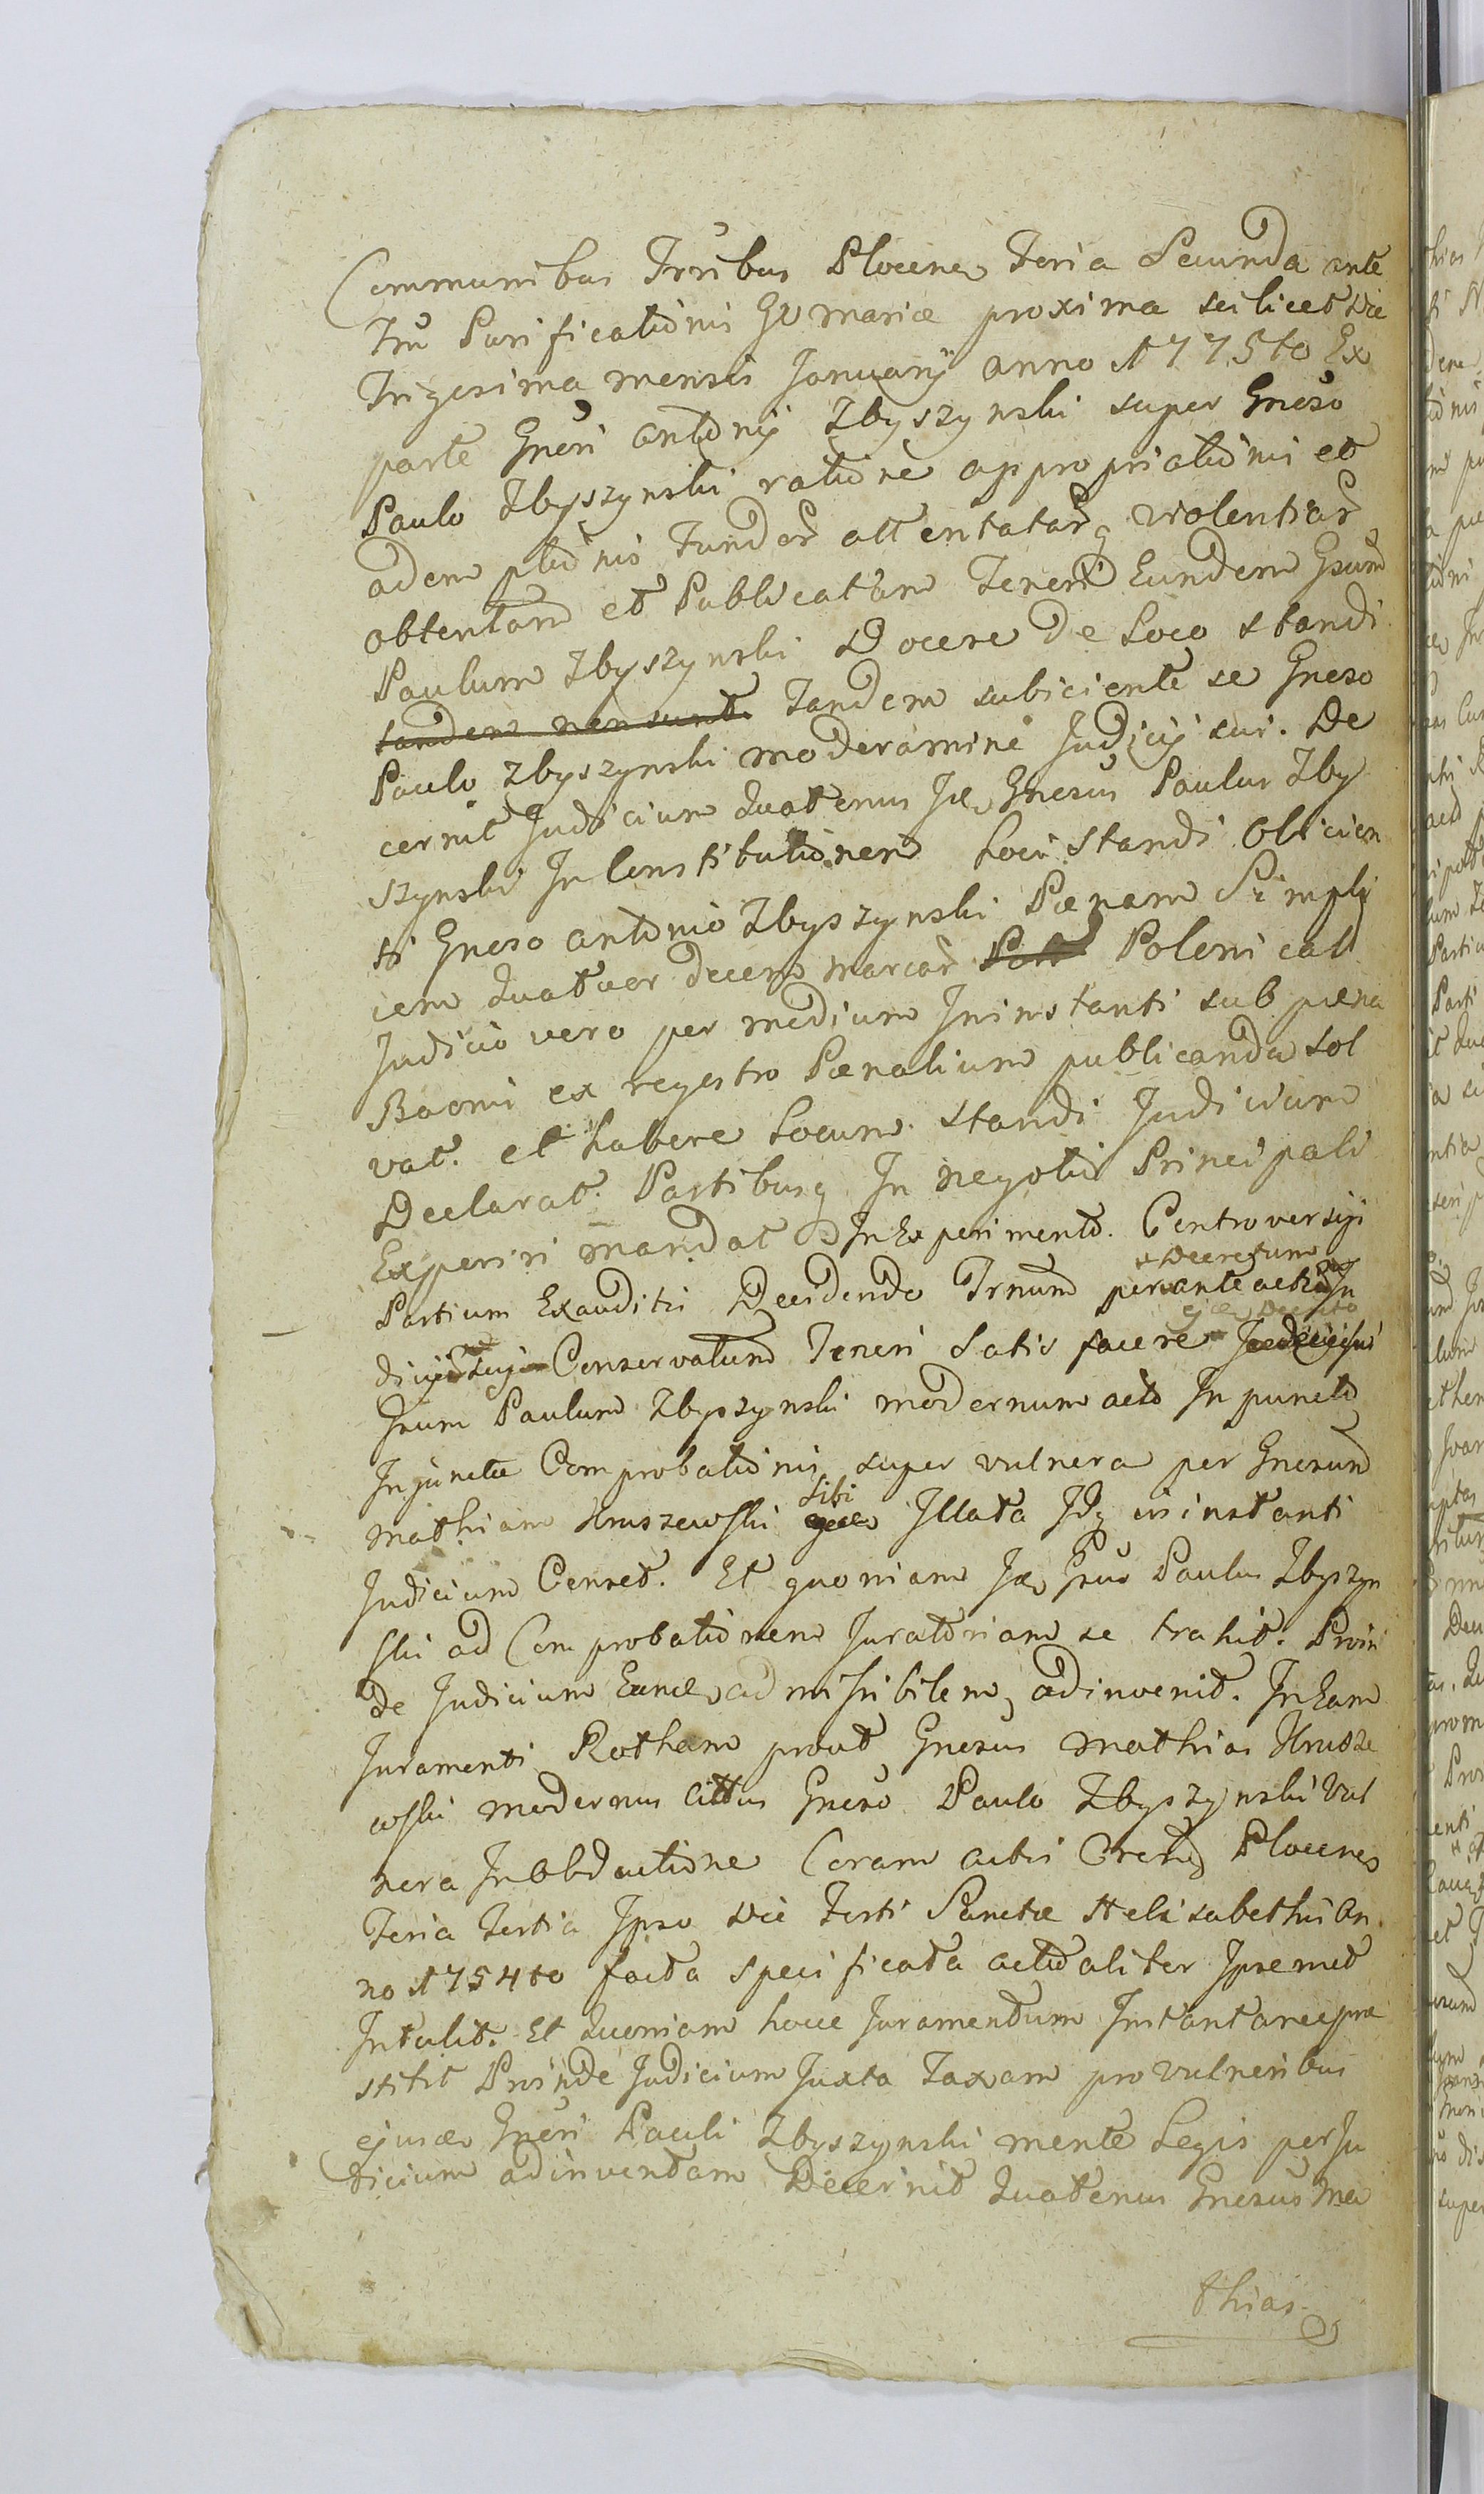 Communibus Trribus Plocens Feria Secunda ante
Ftu Purificationis GV Mariæ proxima scilicet die
Trigesima mensis January anno 1775to Ex
parte Gnesi antonij Zbyszynski super Gneso
Paulo Zbyszynski ratione appropriationis et
ademptionis fundor attentatarq violentiar
obtentam et Publicatam Teneri Eundem Gsum
Paulum Zbyszynski Docere De Loco standi
tandem non sunt. Tandem subiciente se Gneso
Paulo Zbyszynski moderamine Judicij sui. De
cernit Judicium Quatenus Jdem Gnesus Paulus Zby
szynski In Constitutionem Loci standi Obicien
ti Gneso antonio Zbyszynski Pœnam Simpli
cem Quatuor decem marcar Polonicali
Judicio vero per medium Ininstanti sub pœna
Banni ex regestro Pœnalium publicanda sol
vat. et habere Locum standi Judicium
Declarat. Partibusq In negotio Principali
Experiri mandat In Experimento. Controversyi
Partium Exauditis Decidendo Trnum per ante acta In
+ Decretum
Conservatum Teneri Satis facere
Decreto
Gsum Paulum Zbyszynski modernum acto In puncto
Injunctæ Comprobationis super vulnera per Gnesum
sibi
Mathiam Hruszewski Illata Jdq in instanti
Judicium Censet. Et quoniam Jdem Gsus Paulus Zbyszyn
ski ad Comprobationem Juratoriam se trahit. Proin
de Judicium Eandem admissibilem adinvenit. In Eam
Juramenti Rotham prout Gnesus Mathias Hrusze
wski modernus Cittus Gneso Paulo Zbyszynski Vul
nera In Obductione Coram actis Crens Plocens
Feria tertia Ipso die Festi Sanctæ Helisabethis An
no 1754to facta specificata actualiter Ipsemet
Intulit. Et Quoniam hocce Juramentum Instantanee præ
stitit Proinde Judicium Juxta Taxam pro vulneribus
ejusdem Gnesi Pauli Zbyszynski mente Legis per Ju
dicium adinventam Decernit Quatenus Gnesus Ma
thias